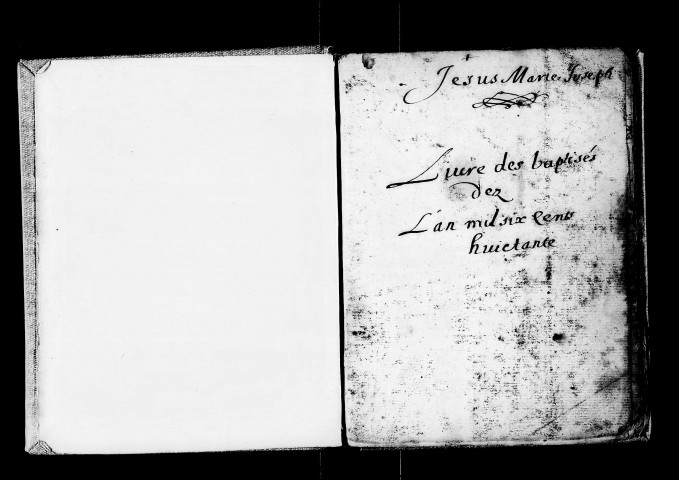 Jesus Marie Joseph
Liure des baptisés
dez
L'an mil six cents
huictante